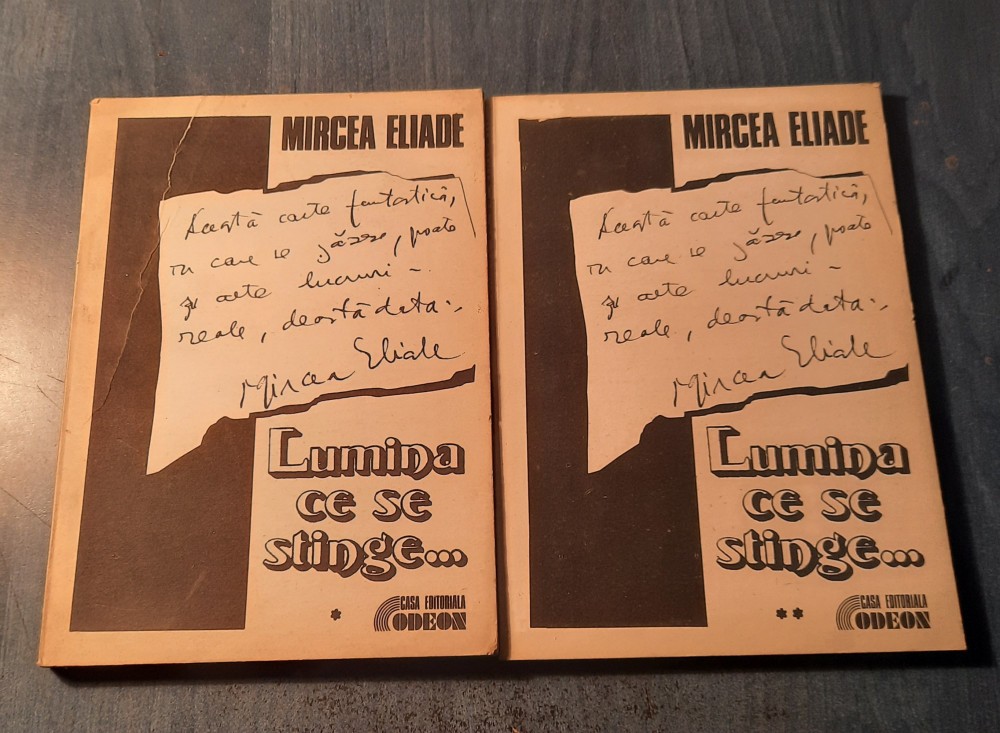 MIRCEA ELIADE
Această carte fantastică,
în care se găsesc, poate
și alte lucruri –
reale, deastădată:
Mircea Eliade
Lumina
ce se
stinge...
*
CASA EDITORIALA
ODEON
MIRCEA ELIADE
Această carte fantastică,
în care se găsesc, poate
și alte lucruri –
reale, deastădată:
Mircea Eliade
Lumina
ce se
stinge...
**
CASA EDITORIALA
ODEON